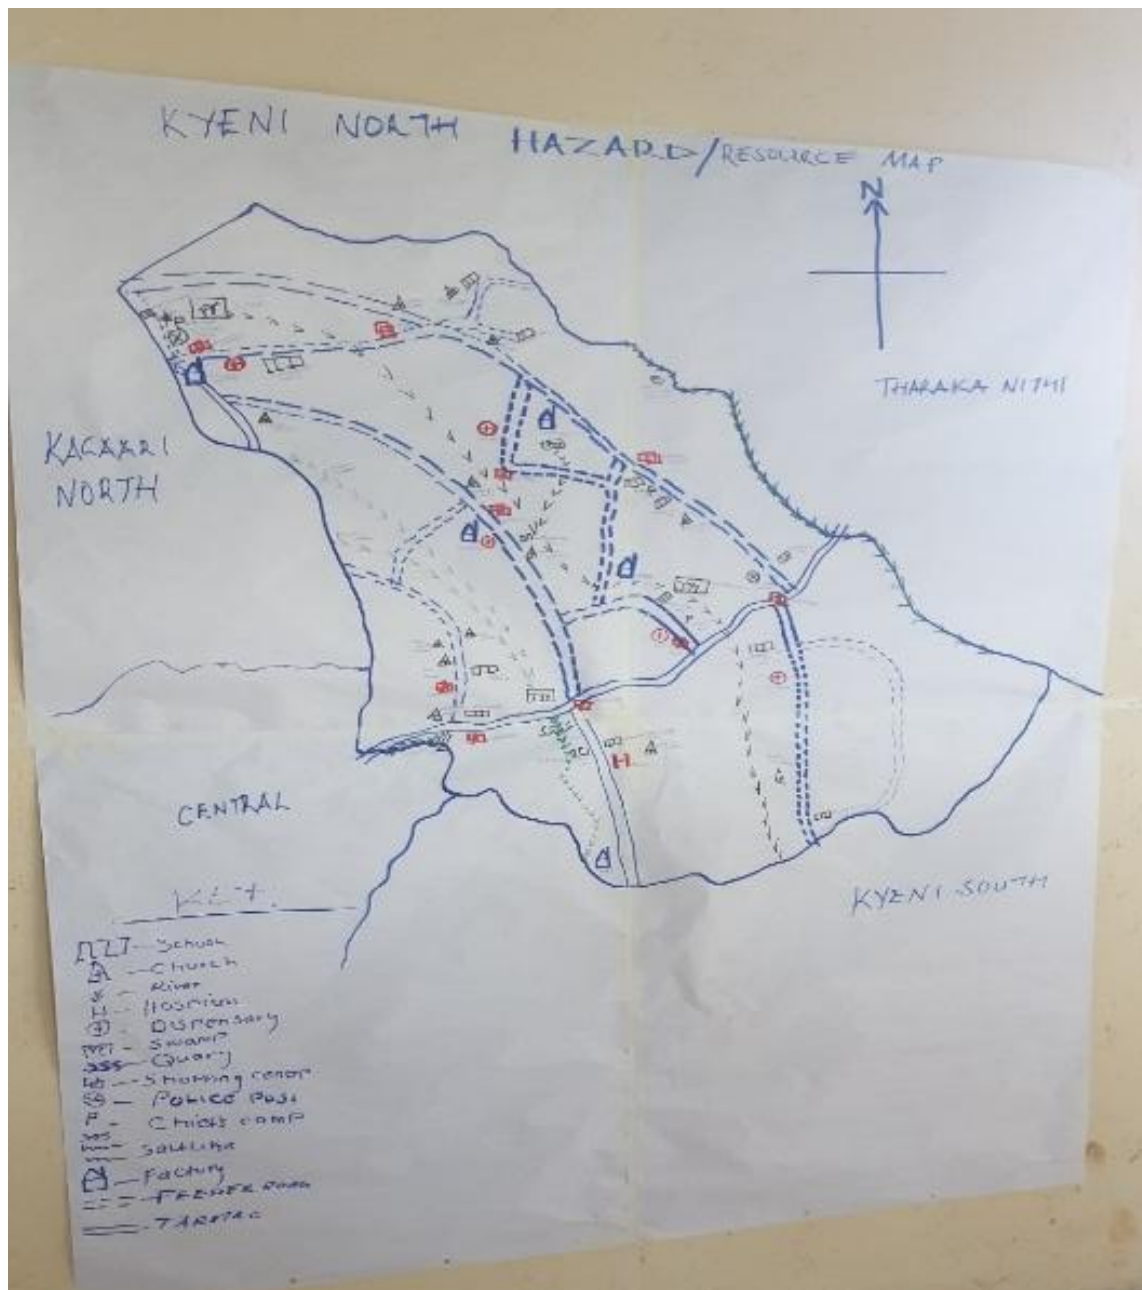 KYENI NORTH HAZARD/RESOURCE MAP
N
THARAKA NITHI
KAGAARI
NORTH
CENTRAL
KYENI SOUTH
KEY.
School
Church
River
H
Dispensary
Swamp
Quary
Police Post
P - Chiefs camp
Factory
FEEDER ROAD
TARMAC
H